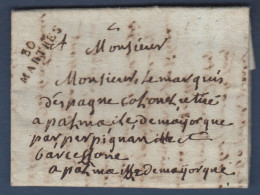 30
MARTRES
Monsieur
Monsieur le marquis
despagne colonel
a palma isle de mayorque
par perpignan
barcelone
a palma isle de mayorque